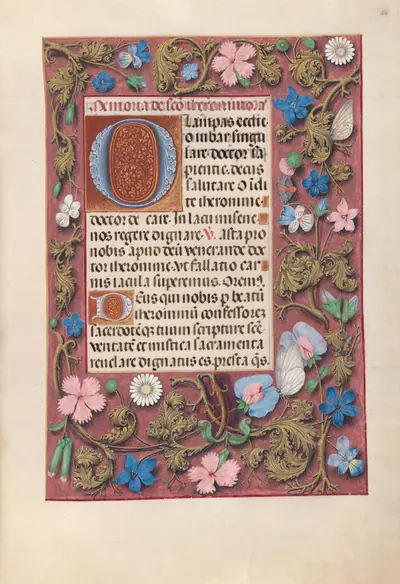 Memoria de sco iheronimo
O lampas eccle
o iubar singu
lare doctor sa
pientie decus
salutare O
te iheronime.
doctor de care. In lacu miserie.
nos regere dignare. V. asta pro
nobis apud deū venerande doc
tor iheronime. Vt fallatio car
nis iacula superemus. Orem9.
Deus qui nobis p beatū
iheronimū confessorē
sacerdotēq; tuum scripture scē
veritatē et mistica sacramenta
reuelare dignatus es. presta qs.